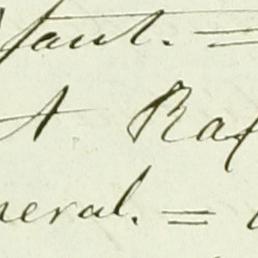 faut. =
A Raf
neral. =